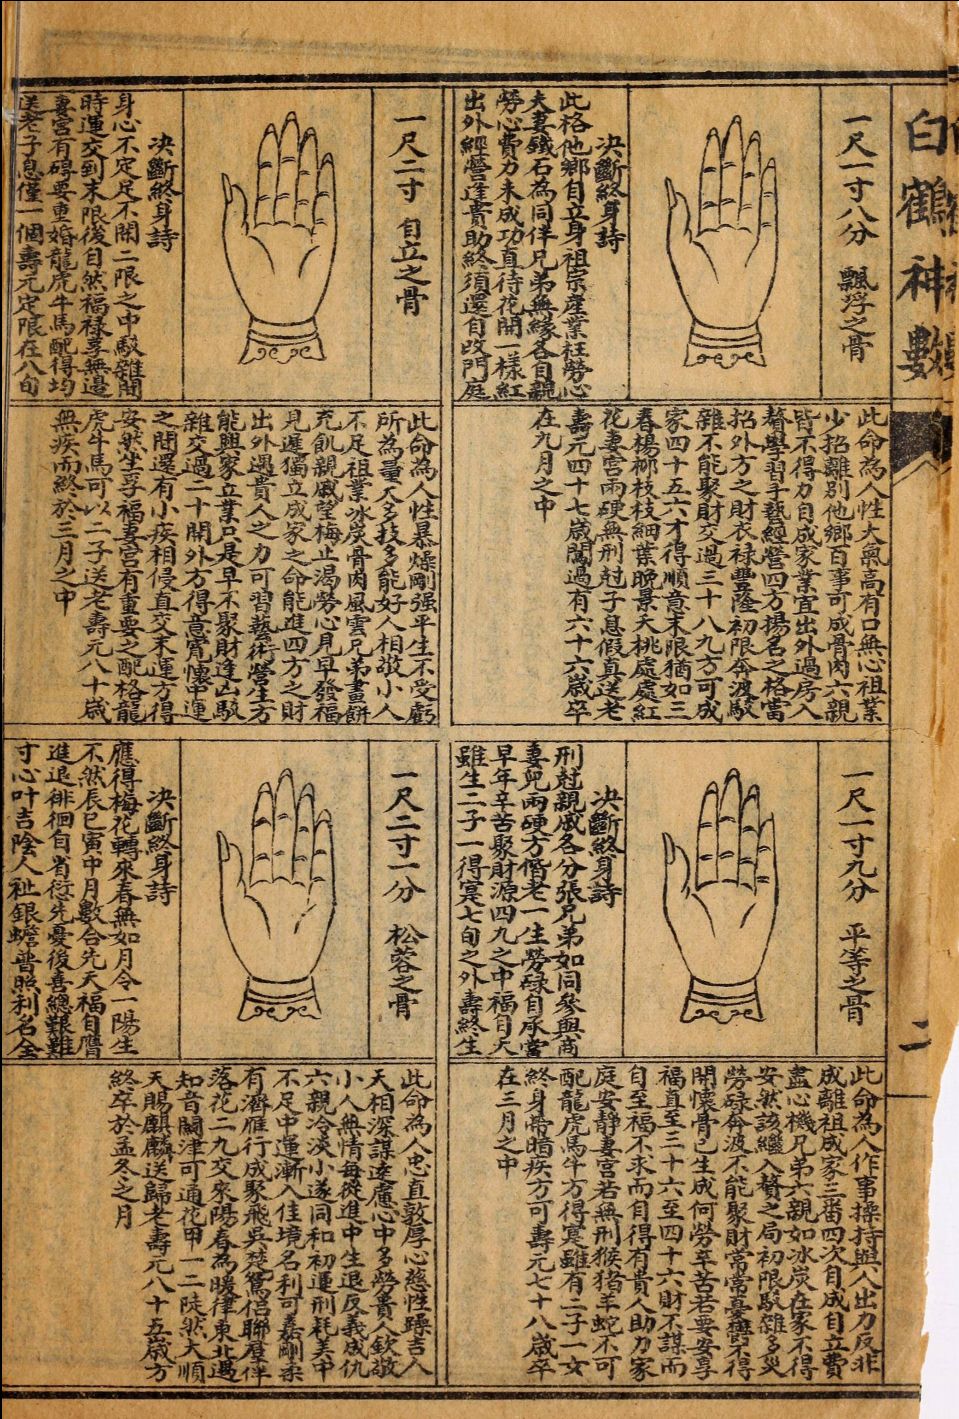 白鶴神數
二
一尺一寸八分 飄浮之骨
决斷終身詩
此格他鄉自立身祖宗產業枉勞心
夫妻鐵石為同伴兄弟無緣各自親
勞心費力未成功直待花開一樣紅
出外經營逢貴助終須還自改門庭
此命為人性大氣高有口無心祖業
少招離別他鄉百事可成骨肉六親
皆不得力自成家業宜出外過房入
贅學習手藝經營四方揚名之格當
招外方之財衣祿豐隆初限奔波駁
雜不能聚財交過三十八九方可成
家四十五六才得順意末限猶如三
春楊柳枝枝細葉晚景夭桃處處紅
花妻宮兩硬無刑尅子息假真送老
壽元四十七歲闖過有六十六歲卒
在九月之中
一尺二寸 自立之骨
决斷終身詩
身心不定足不閒二限之中駁雜間
時運交到末限後自然福祿享無邊
妻宮有碍要重婚龍虎牛馬配得均
送老子息僅一個壽元定限在八旬
此命為人性暴燥剛强平生不受虧
所為量大多技多能好人相敬小人
不足祖業冰炭骨肉風雲兄弟畫餅
充飢親戚望梅止渴勞心見早發福
見遲獨立成家之命能進四方之財
出外遇貴人之力可習藝術營生方
能興家立業只是早不聚財逢凶駁
雜交過二十開外方得意寬懷中運
之間還有小疾相侵直交末運方得
安然坐享福妻宮有重要之配格龍
虎牛馬可以二子送老壽元八十歲
無疾而終於三月之中
一尺一寸九分 平等之骨
决斷終身詩
刑尅親戚各分張兄弟如同參與商
妻兒兩硬方偕老一生勞碌自承當
早年辛苦聚財源四九之中福自天
雖生二子一得寔七旬之外壽終生
此命為人作事操持與人出力反非
成離祖成家三番四次自成自立費
盡心機兄弟六親如冰炭在家不得
安然該繼入贅之局初限駁雜多災
勞碌奔波不能聚財常常憂鬱不得
開懷骨已生成何勞辛苦若要安享
福直至三十六至四十六財不謀而
自至福不求而自得有貴人助力家
庭安靜妻宮若無刑猴猪羊蛇不可
配龍虎馬牛方得寔雖有二子一女
終身帶暗疾方可壽元七十八歲卒
在三月之中
一尺二寸一分 松蓉之骨
决斷終身詩
應得梅花轉來春無如月令一陽生
不然辰巳寅中月數合先天福自膺
進退徘徊自省愆先憂後喜總艱難
寸心叶吉陰人祉銀蟾普照利名全
此命為人忠直敦厚心慈性躁吉人
天相深謀遠慮心中多勞貴人欽敬
小人無情每從進中生退反義成仇
六親冷淡小遂同和初運刑耗美中
不足中運漸入佳境名利可嘉剛柔
有濟雁行成聚飛吳楚鴛侶聯羣伴
落花二九交來陽春為暖律東北遇
知音關津可通花甲一二陡然大順
天賜麒麟送歸老壽元八十五歲方
終卒於孟冬之月